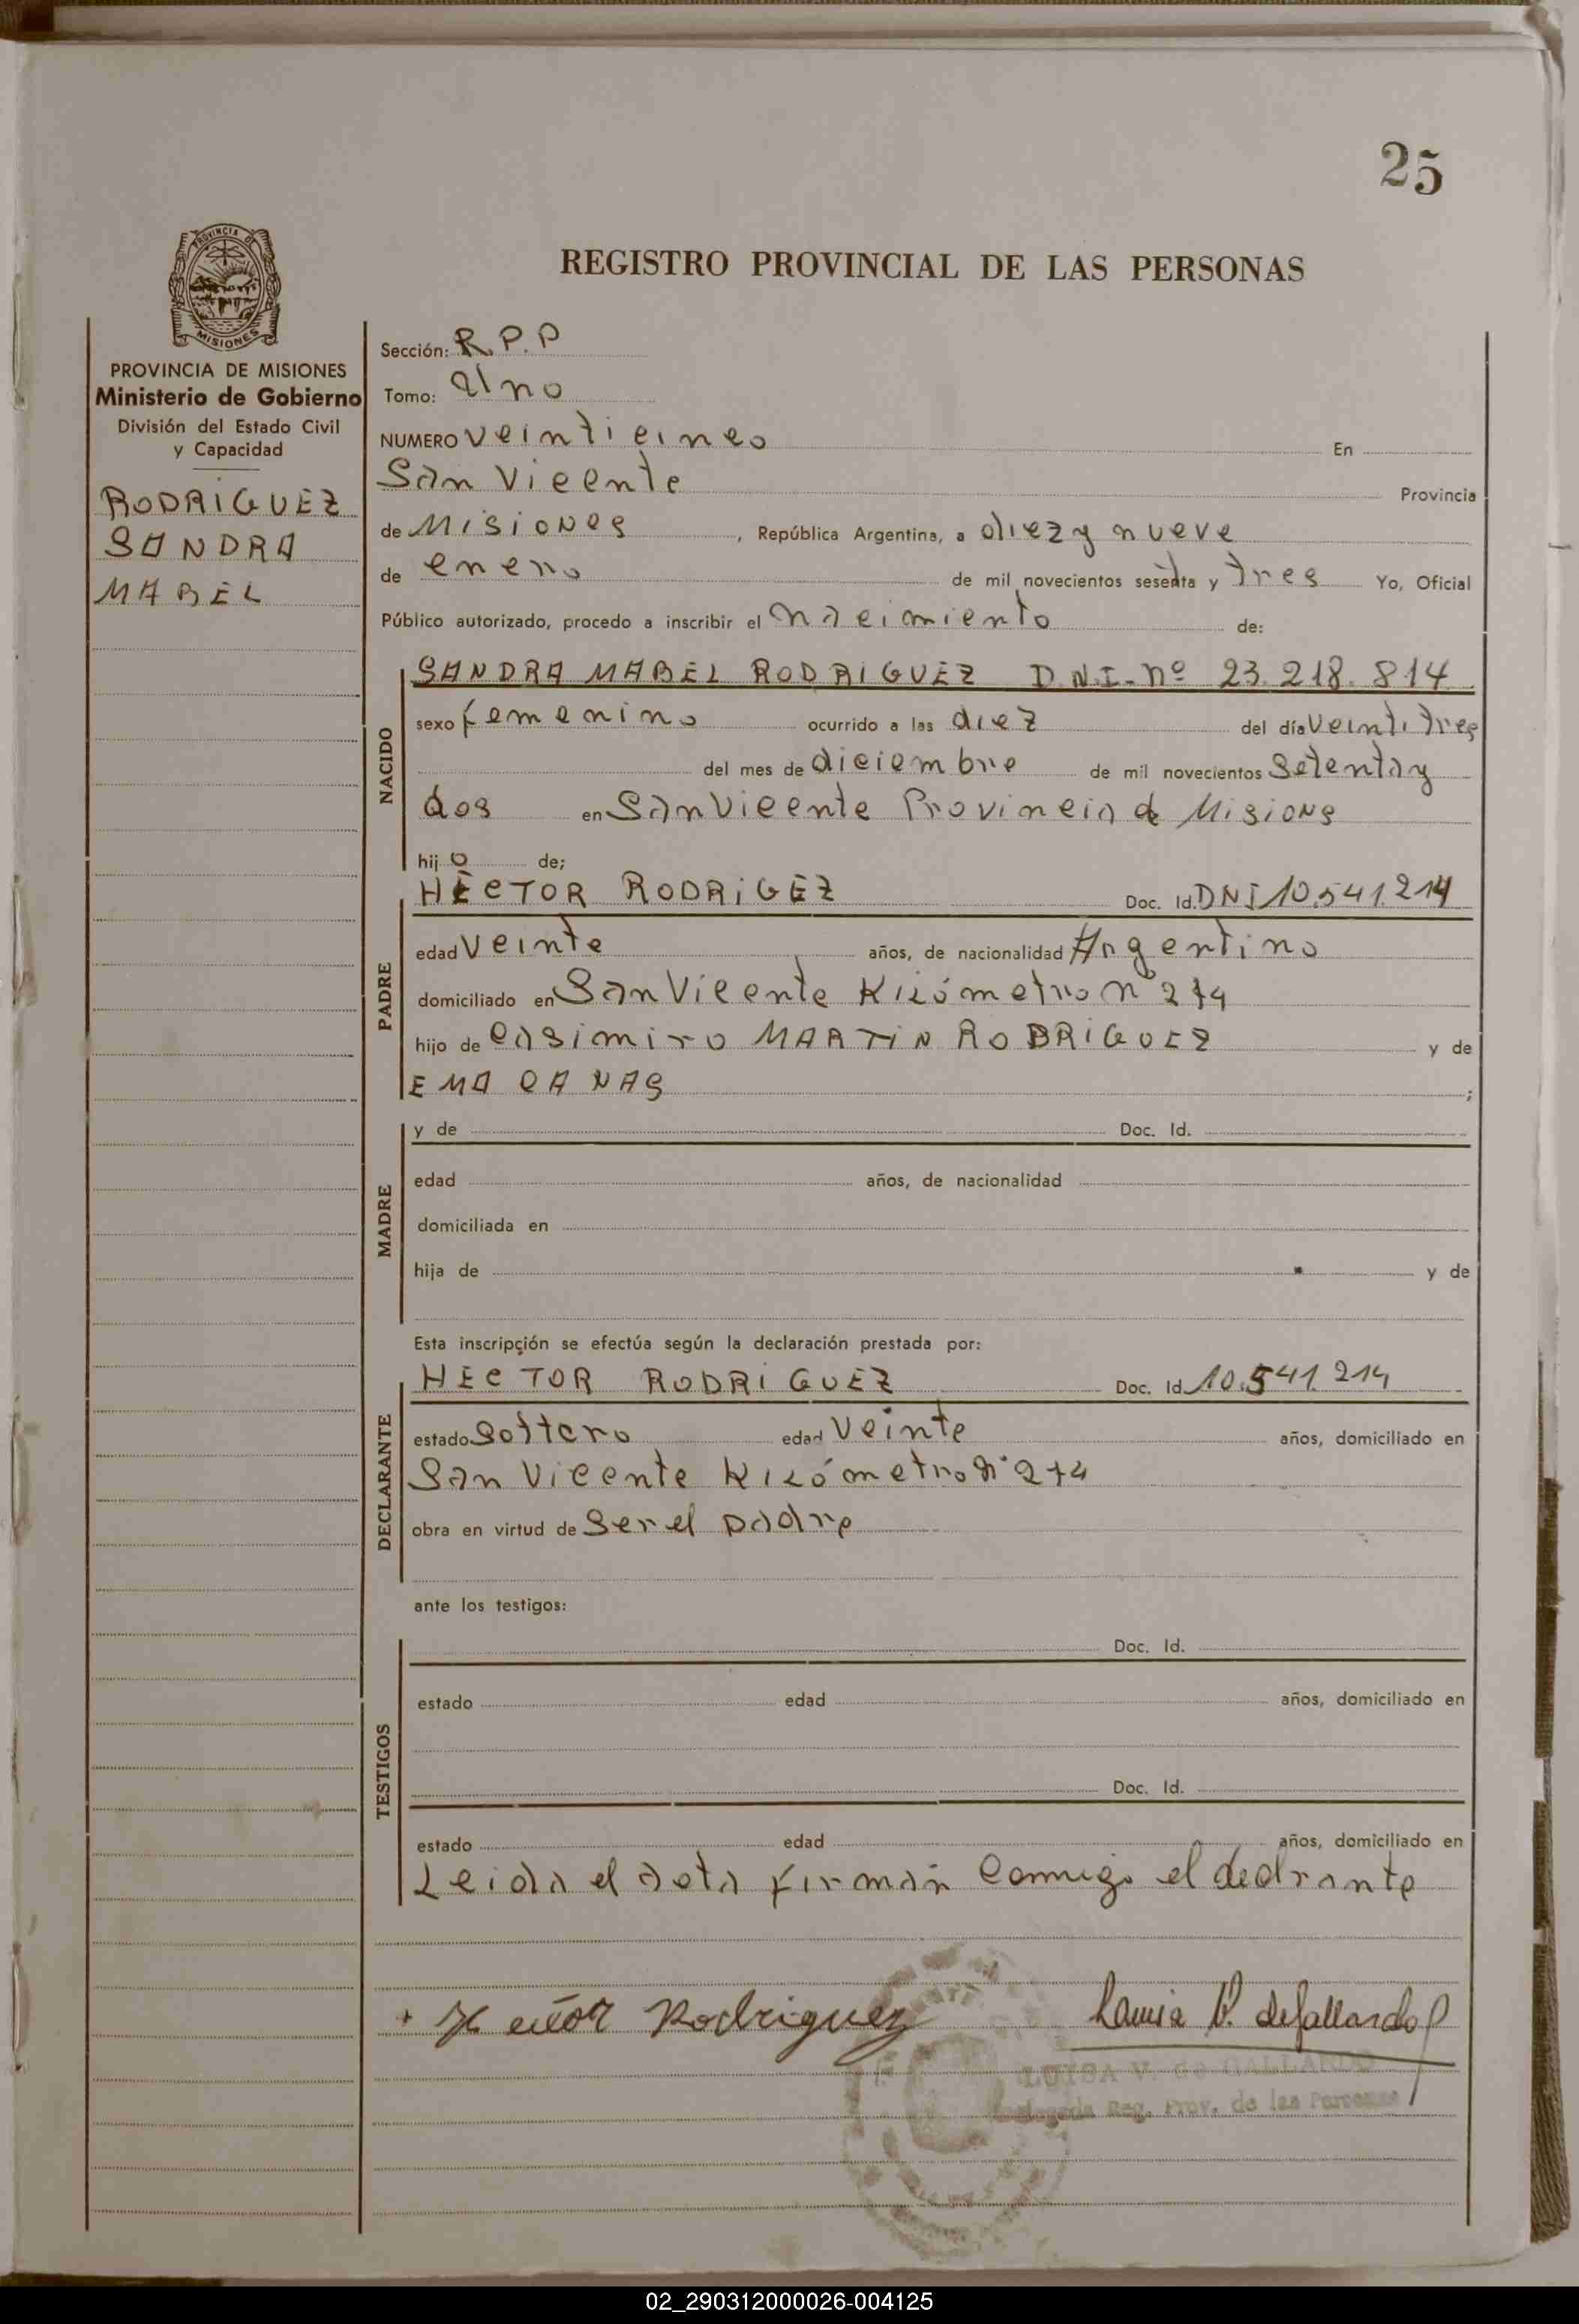 25
PROVINCIA DE
MISIONES
REGISTRO PROVINCIAL DE LAS PERSONAS
PROVINCIA DE MISIONES
Ministerio de Gobierno
División del Estado Civil
y Capacidad
RODRIGUEZ
SANDRA
MABEL
Sección: R.P.P
Tomo: Uno
NUMERO veinticinco En
San Vicente Provincia
de Misiones, República Argentina, a diez y nueve
de enero de mil novecientos sesenta y tres Yo, Oficial
Público autorizado, procedo a inscribir el nacimiento de:
NACIDO
SANDRA MABEL RODRIGUEZ D.N.I. nº 23.218.814
sexo femenino ocurrido a las diez del día veintitres
del mes de diciembre de mil novecientos setenta y
dos en San Vicente Provincia de Misiones
hijo de;
PADRE
HÉCTOR RODRIGEZ Doc. Id. DNI 10.541.214
edad veinte años, de nacionalidad Argentino
domiciliado en San Vicente Kilómetro nº 274
hijo de Casimiro MARTIN RODRIGUEZ y de
EMA CANAS ;
MADRE
y de Doc. Id.
edad años, de nacionalidad
domiciliada en
hija de y de
Esta inscripción se efectúa según la declaración prestada por:
DECLARANTE
HECTOR RODRIGUEZ Doc. Id 10.541.214
estado soltero edad veinte años, domiciliado en
San Vicente Kilómetro Nº 274
obra en virtud de ser el padre
ante los testigos:
TESTIGOS
Doc. Id.
estado edad años, domiciliado en
Doc. Id.
estado edad años, domiciliado en
Leida el acta firman conmigo el declrante
+ Hector Rodriguez
Luisa V. de Gallardo
LUISA V. de GALLARDO
Delegada Reg. Prov. de las Personas
02_290312000026-004125